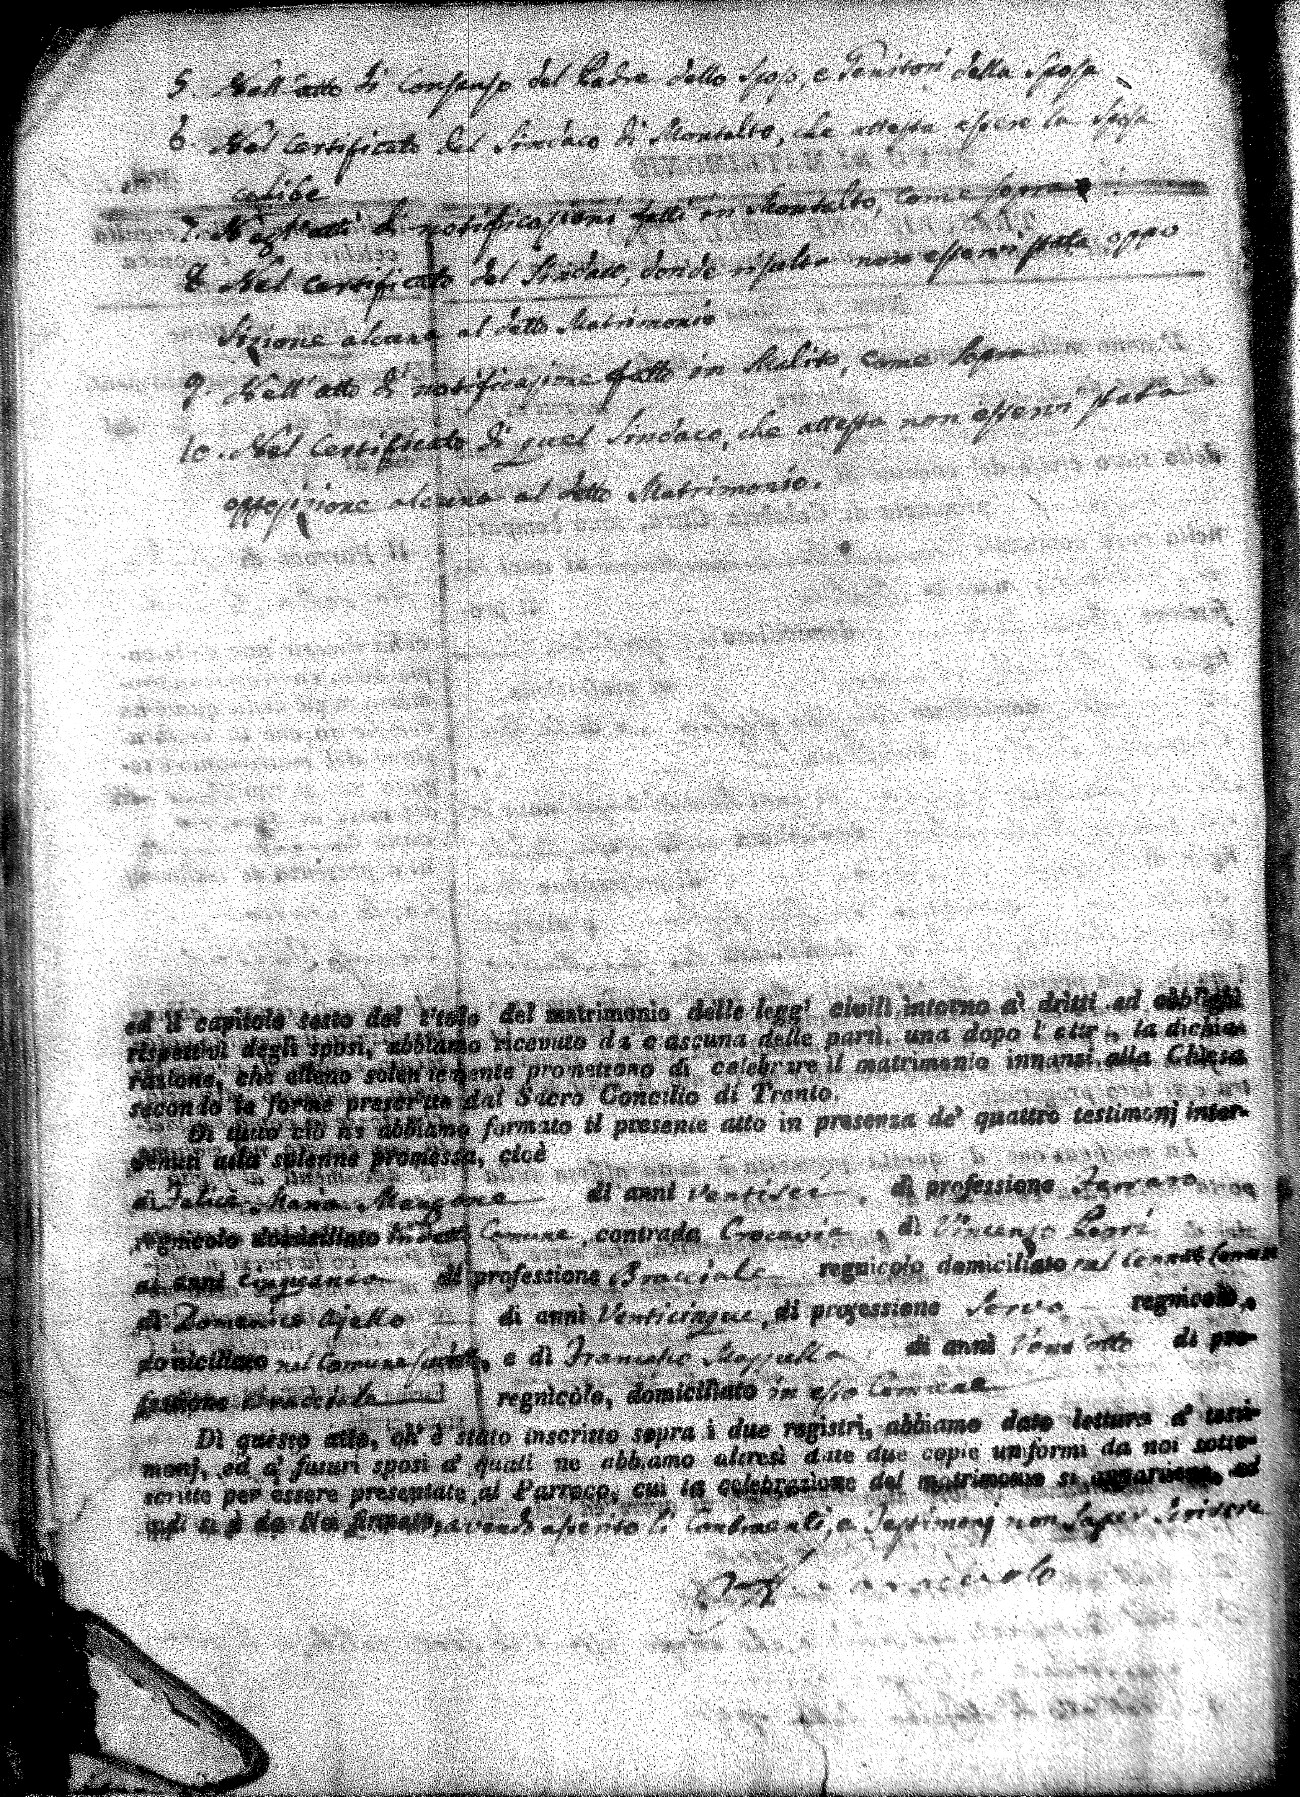 5. Nell'atto di Consenso del Padre dello Sposo, e Genitori della Sposa
6 Nel Certificato del Sindaco di Montalto, che attesta essere la Sposa
celibe
7. Negl'atti di notificazioni fatti in Montalto, come sopra
8. Nel Certificato del Sindaco, donde risulta non esservi stata oppo
sizione alcuna al detto Matrimonio
9. Nell'atto di notificazione fatto in Malito, come sopra
10. Nel Certificato di quel Sindaco, che attesta non esservi stata
opposizione alcuna al detto Matrimonio.
ed il capitolo sesto del titolo del matrimonio delle leggi civili intorno a' dritti ed obblighi
rispettivi degli sposi, abbiamo ricevuto da ciascuna delle parti, una dopo l'altra, la dichia-
razione, che elleno solennemente promettono di celebrare il matrimonio innanzi alla Chiesa
secondo le forme prescritte dal Sacro Concilio di Trento.
Di tutto ciò ne abbiamo formato il presente atto in presenza de' quattro testimonj inter-
venuti alla solenne promessa, cioè
di Felice Maria di anni Ventisei, di professione Ferraro
regnicolo domiciliato in detta Comune, contrada Crocavia, di Vincenzo Perri
di anni Cinquanta di professione Bracciale regnicolo domiciliato nel Comune
di Domenico Ajello di anni Venticinque, di professione Servo regnicolo,
domiciliato nel Comune, e di Francesco di anni Vent'otto di pro-
fessione Bracciale regnicolo, domiciliato in esso Comune
Di questo atto, ch' è stato inscritto sopra i due registri, abbiamo dato lettura a' testi-
monj, ed a' futuri sposi a' quali ne abbiamo altresì date due copie uniformi da noi sotto-
scritte per essere presentate al Parroco, cui la celebrazione del matrimonio si appartiene, ed
indi si è da Noi firmato, avendo asserito li Contraenti, e Testimonj non saper scrivere